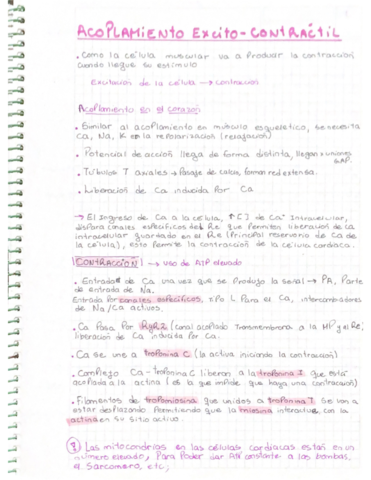 ACOPLAMIENTO EXCITO-CONTRÁCTIL
· Como la célula muscular va a producir la contracción
cuando llegue su estímulo
Excitación de la célula → contracción
Acoplamiento en el corazón
· Similar al acoplamiento en músculo esquelético, se necesita
Ca, Na, K en la repolarización (relajación)
· Potencial de acción llega de forma distinta, llegan x uniones
GAP.
· Túbulos T axales → Pasaje de calcio, forman red extensa.
· Liberación de Ca inducida por Ca
→ El Ingreso de Ca a la célula, ↑[ ] de Ca intracelular,
dispara canales específicos del Re que permiten liberación de Ca
intracelular guardado en el Re (Principal reservorio de Ca de
la célula), esto permite la contracción de la célula cardíaca.
CONTRACCIÓN → uso de ATP elevado
· Entrada de Ca una vez que se produjo la señal → PA, Parte
de entrada de Na.
Entrada por canales específicos, tipo L Para el Ca, intercambiadores
de Na/Ca activos.
· Ca Pasa Por RyR2 (canal acoplado transmembrana a la MP y el Re),
liberación de Ca inducida por Ca.
· Ca se une a troponina C (la activa iniciando la contracción)
· Complejo Ca-troponina C liberan a la troponina I que está
acoplada a la actina (es la que impide que haya una contracción)
· Filamentos de tropomiosina que unidos a troponina T se van a
estar desplazando Permitiendo que la miosina interactúe con la
actina en su sitio activo
Las mitocondrias en las células cardíacas están en un
número elevado, Para Poder dar ATP constante a las bombas,
el Sarcómero, etc;